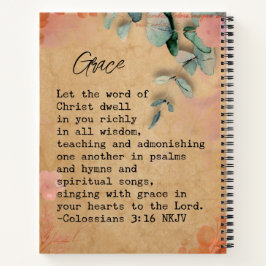 Grace
Let the word of
Christ dwell
in you richly
in all wisdom,
teaching and admonishing
one another in psalms
and hymns and
spiritual songs,
singing with grace in
your hearts to the Lord.
-Colossians 3:16 NKJV